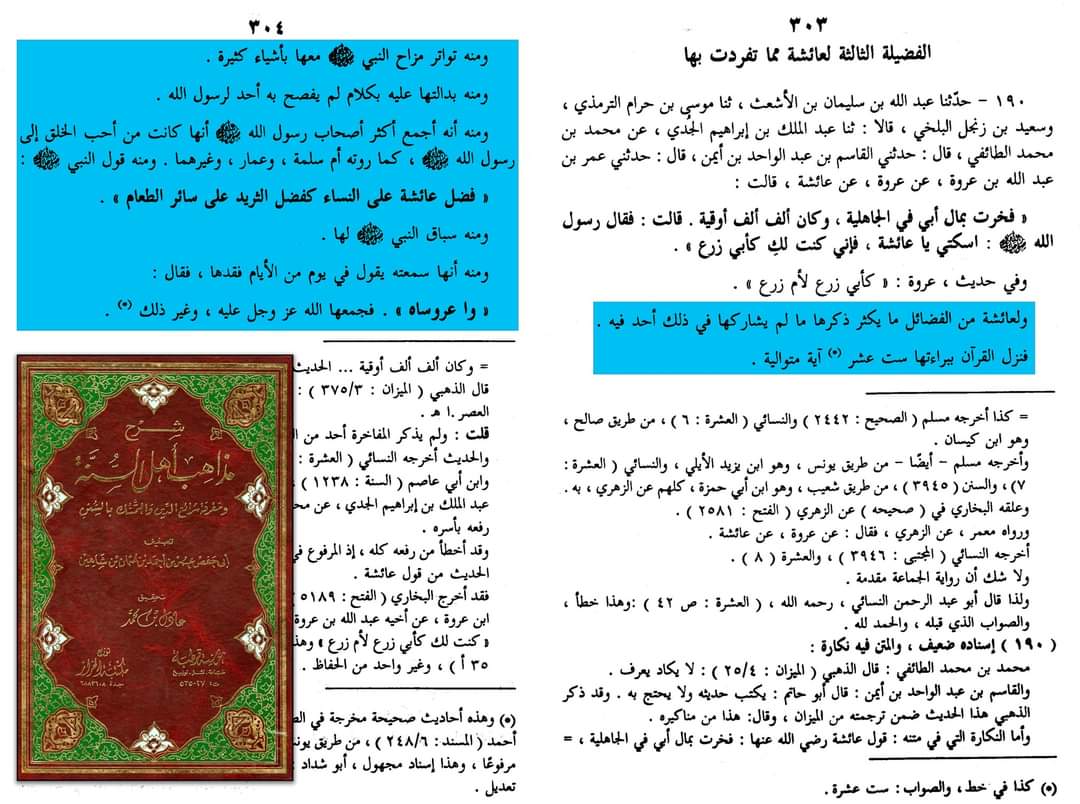 ٣٠٣
الفضيلة الثالثة لعائشة مما تفردت بها
١٩٠ – حدّثنا عبد الله بن سليمان بن الأشعث ، ثنا موسى بن حرام الترمذي ،
وسعيد بن زنجل البلخي ، قالا : ثنا عبد الملك بن إبراهيم الجُدي ، عن محمد بن
محمد الطائفي ، قال : حدثني القاسم بن عبد الواحد بن أيمن ، قال : حدثني عمر بن
عبد الله بن عروة ، عن عروة ، عن عائشة ، قالت :
« فخرت بمال أبي في الجاهلية ، وكان ألف ألف أوقية . قالت : فقال رسول
الله ﷺ : اسكتي يا عائشة ، فإني كنت لكِ كأبي زرع » .
وفي حديث ، عروة : « كأبي زرع لأم زرع » .
ولعائشة من الفضائل ما يكثر ذكرها ما لم يشاركها في ذلك أحد فيه .
فنزل القرآن ببراءتها ست عشر (*) آية متوالية .
= كذا أخرجه مسلم ( الصحيح : ٢٤٤٢ ) والنسائي ( العشرة : ٦ ) ، من طريق صالح ،
وهو ابن كيسان .
وأخرجه مسلم – أيضًا – من طريق يونس ، وهو ابن يزيد الأيلي ، والنسائي ( العشرة :
٧) ، والسنن ( ٣٩٤٥ ) ، من طريق شعيب ، وهو ابن أبي حمزة ، كلهم عن الزهري ، به .
وعلقه البخاري في ( صحيحه ) عن الزهري ( الفتح : ٢٥٨١ ) .
ورواه معمر ، عن الزهري ، فقال : عن عروة ، عن عائشة .
أخرجه النسائي ( المجتبى : ٣٩٤٦ ) ، والعشرة ( ٨ ) .
ولا شك أن رواية الجماعة مقدمة .
ولذا قال أبو عبد الرحمن النسائي ، رحمه الله ، ( العشرة : ص ٤٢ ) :وهذا خطأ ،
والصواب الذي قبله ، والحمد لله .
( ١٩٠ ) إسناده ضعيف ، والمتن فيه نكارة :
محمد بن محمد الطائفي : قال الذهبي ( الميزان : ٢٥/٤ ) : لا يكاد يعرف .
والقاسم بن عبد الواحد بن أيمن : قال أبو حاتم : يكتب حديثه ولا يحتج به . وقد ذكر
الذهبي هذا الحديث ضمن ترجمته من الميزان ، وقال: هذا من مناكيره .
وأما النكارة التي في متنه : قول عائشة رضي الله عنها : فخرت بمال أبي في الجاهلية ، =
(*) كذا في خط، والصواب: ست عشرة .
٣٠٤
ومنه تواتر مزاح النبي ﷺ معها بأشياء كثيرة .
ومنه بدالتها عليه بكلام لم يفصح به أحد لرسول الله .
ومنه أنه أجمع أكثر أصحاب رسول الله ﷺ أنها كانت من أحب الخلق إلى
رسول الله ﷺ ، كما روته أم سلمة ، وعمار ، وغيرهما . ومنه قول النبي ﷺ :
« فضل عائشة على النساء كفضل الثريد على سائر الطعام » .
ومنه سباق النبي ﷺ لها .
ومنه أنها سمعته يقول في يوم من الأيام فقدها ، فقال :
« وا عروساه » . فجمعها الله عز وجل عليه ، وغير ذلك (*) .
= وكان ألف ألف أوقية ... الحديث
قال الذهبي ( الميزان : ٣٧٥/٣ ) :
العصر.ا هـ .
قلت : ولم يذكر المفاخرة أحد من
والحديث أخرجه النسائي ( العشرة :
وابن أبي عاصم ( السنة : ١٢٣٨ )
عبد الملك بن إبراهيم الجدي ، عن
رفعه بأسره .
وقد أخطأ من رفعه كله ، إذ المرفوع
الحديث من قول عائشة .
فقد أخرج البخاري ( الفتح : ٥١٨٩
ابن عروة ، عن أخيه عبد الله بن عروة
« كنت لك كأبي زرع لأم زرع »
٣٥ أ ) ، وغير واحد من الحفاظ .
(*) وهذه أحاديث صحيحة مخرجة في
أحمد ( المسند : ٢٤٨/٦ ) ، من طريق
مرفوعًا ، وهذا إسناد مجهول ، أبو شداد
تعديل .
شرح
مذاهب أهل السنة
ومعرفة شرائع الدين والتمسك بالسنن
تصنيف
أبي حفص عمر بن أحمد بن عثمان بن شاهين
تحقيق
عادل بن محمد